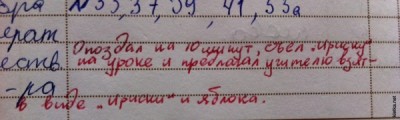 №35,37,39, 41, 53а
ерат
Опоздал на 10 минут, съел „Ириску"
еств на уроке и предлагал учителю взят-
-ра
в виде „Ириски" и яблока.